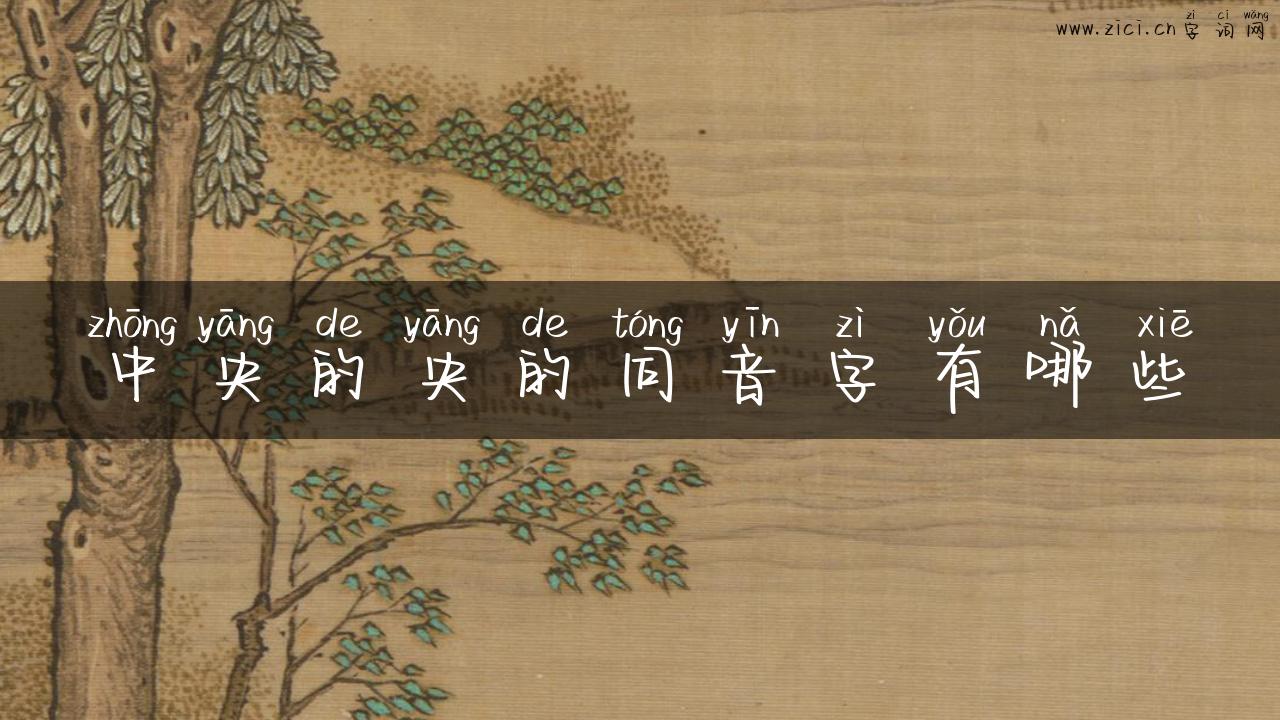 zì cí wǎng
www.zici.cn 字词网
zhōng yāng de yāng de tóng yīn zì yǒu nǎ xiē
中央的央的同音字有哪些